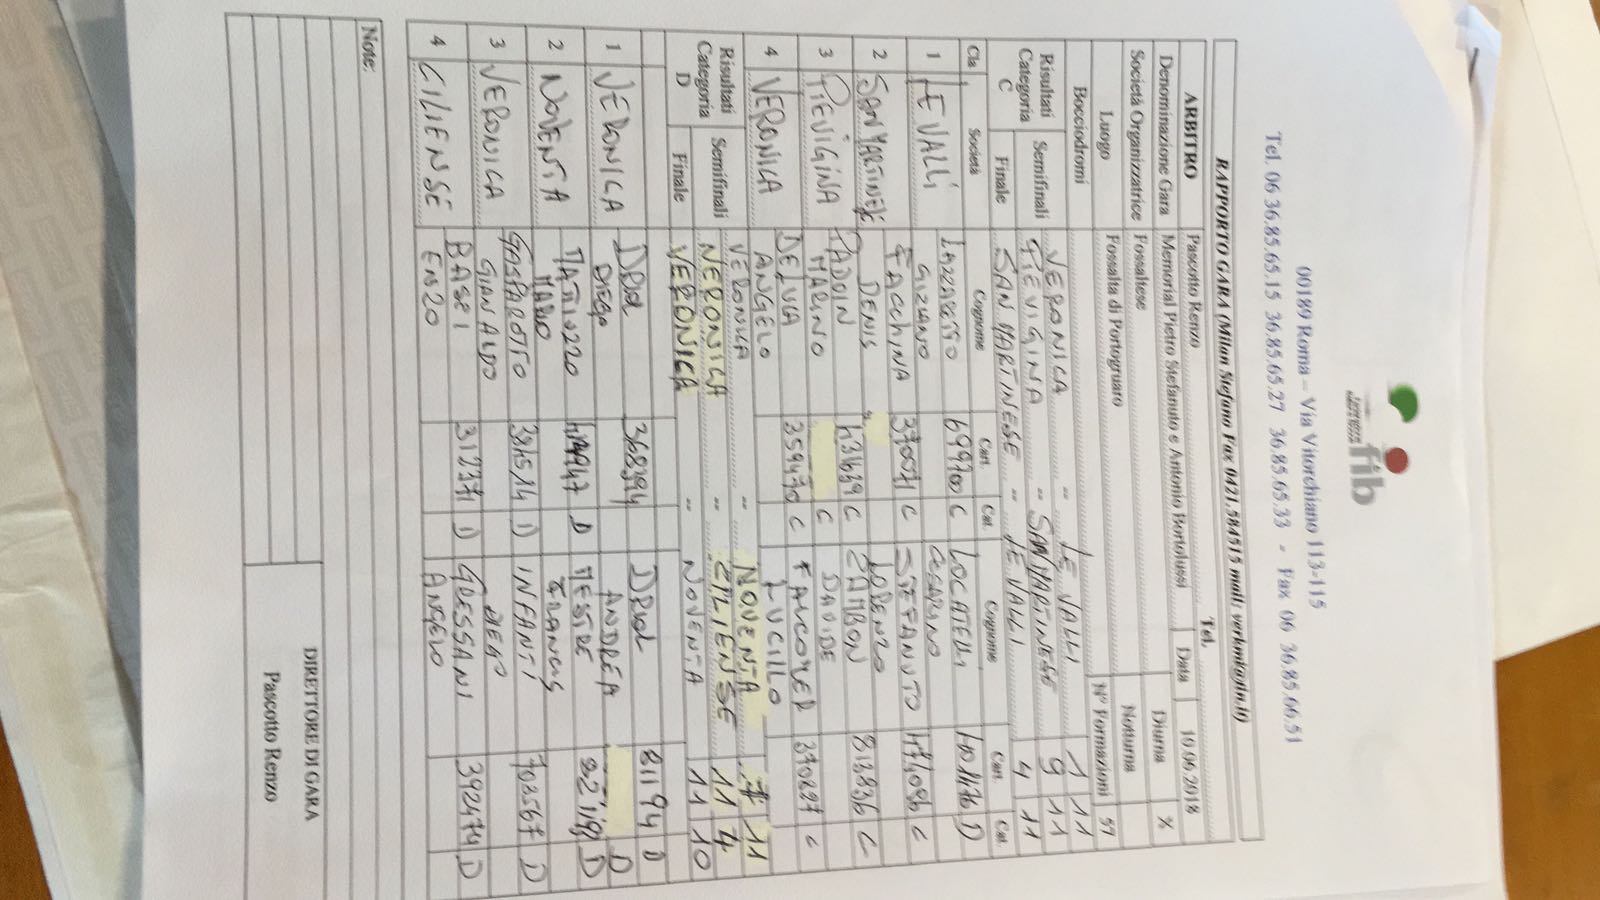 fib
00189 Roma – Via Vitorchiano 113-115
Tel. 06 36.85.65.15 36.85.65.27 36.85.65.33 - Fax 06 36.85.66.51
RAPPORTO GARA (Milan Stefano Fax 0421.584515 mail:
ARBITRO Pascotto Renzo Tel.
Denominazione Gara Memorial Pietro Stefanuto e Antonio Bortolussi Data 10.06.2018
Società Organizzatrice Fossaltese Diurna X
Luogo Fossalta di Portogruaro Notturna
Bocciodromi N° Formazioni 57
Risultati Categoria C Semifinali VERONICA -- LE VALLI 1 11
PIEVIGINA -- SAN MARTINESE 9 11
Finale SAN MARTINESE -- LE VALLI 4 11
Cla Società Cognome Cart. Cat. Cognome Cart. Cat.
1 LE VALLI LAZZAROTTO C LOCATELLI D
GIULIANO CESARINO
2 SAN MARTINESE FACCHINA 370071 C STEFFANUTO C
DENIS LORENZO
3 PIEVIGINA PADOIN C ZAMBON 813836 C
MARINO C DAVIDE
4 VERONICA DE LUCA 359470 C FALCOMER 370897 C
ANGELO LUCILLO
Risultati Categoria D Semifinali VERONICA -- NOVENTA 11
VERONICA -- CILIENSE 11 4
Finale VERONICA -- NOVENTA 11 10
1 VERONICA DRIOL 368394 DRIOL 81194 D
DIEGO ANDREA D
2 NOVENTA D MESTRE D
MARIO FRANCUS
3 VERONICA GASPAROTTO D INFANTI 708567 D
GIANALDO DIEGO
4 CILIENSE BASEI 312371 D GRESSANI 392474 D
ENZO ANGELO
Note:
DIRETTORE DI GARA
Pascotto Renzo